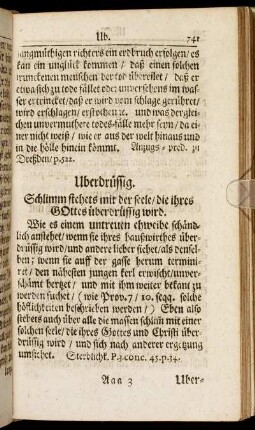 Ub. 741
langmüthigen richters ein erdbruch erfolgen/ es
kan ein unglück kommen / daß einen solchen
trunckenen menschen der tod übereilet / daß er
etwa sich zu tode fället oder unversehens im was-
ser ertrincket/ daß er wird vom schlage gerühret/
wird erschlagen/ erstochen ꝛc. und was derglei-
chen unvermuthete todes-fälle mehr seyn/ da ei-
ner nicht weiß / wie er aus der welt hinaus und
in die hölle hinein kömmt. Anzugs-pred. zu
Dreßden/ p. 522.
Uberdrüssig.
Schlimm stehets mit der seele/ die ihres
GOttes überdrüssig wird.
Wie es einem untreuen eheweibe schänd-
lich anstehet/ wenn sie ihres hauswirthes über-
drüssig wird/ und andere lieber siehet/ als densel-
ben; wenn sie auff der gasse herum termini-
ret / den nähesten jungen kerl erwischt/ unver-
schämt herget/ und mit ihm weiter bekant zu
werden suchet/ (wie Prov. 7/ 10. seqq. solche
höflichkeiten beschrieben werden/) Eben also
stehets auch über alle die massen schlim mit einer
solchen seele/ die ihres Gottes und Christi über-
drüssig wird / und sich nach anderer ergetzung
umsiehet. Sterblichk. P. 3. conc. 45. p. 34.
Aaa 3 Uber-